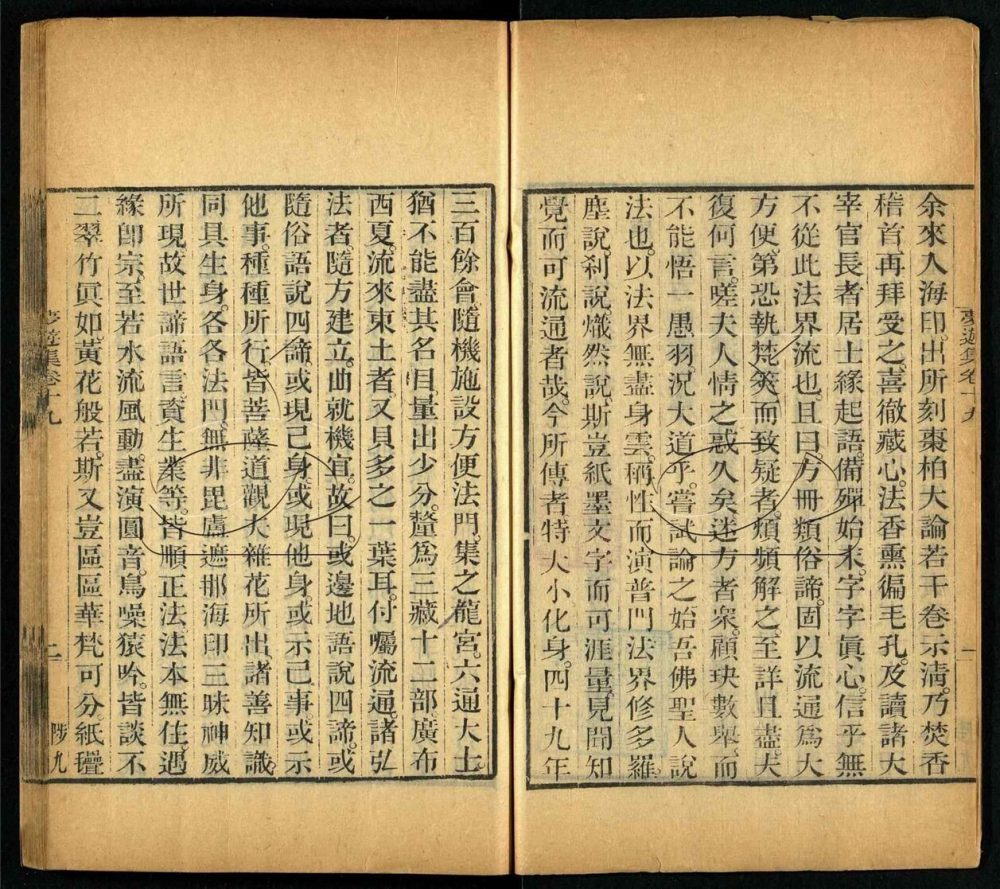 余來入海印出所刻棗柏大論若干卷示淸乃焚香
稽首再拜受之喜徹藏心法香熏徧毛孔及讀諸大
宰官長者居士緣起語備殫始末字字眞心信乎無
不從此法界流也且曰方冊類俗諦固以流通爲大
方便第恐執梵筴而致疑者頻頻解之至詳且盡夫
復何言嗟夫人情之惑久矣迷方者衆顧玦數舉而
不能悟一愚羽況大道乎嘗試論之始吾佛聖人說
法也以法界無盡身雲稱性而演普門法界修多羅
塵說刹說熾然說斯豈紙墨文字而可涯量見聞知
覺而可流通者哉今所傳者特大小化身四十九年
夢遊集卷十九
一
三百餘會隨機施設方便法門集之龍宮六通大士
猶不能盡其名目量出少分釐爲三藏十二部廣布
西夏流來東土者又貝多之一葉耳付囑流通諸弘
法者隨方建立曲就機宜故曰或邊地語說四諦或
隨俗語說四諦或現己身或現他身或示己事或示
他事種種所行皆菩薩道觀夫雜花所出諸善知識
同具生身各各法門無非毘盧遮那海印三昧神威
所現故世諦語言資生業等皆順正法法本無住遇
緣卽宗至若水流風動盡演圓音鳥噪猿吟皆談不
二翠竹眞如黃花般若斯又豈區區華梵可分紙墨
夢遊集卷十九
二
陟九